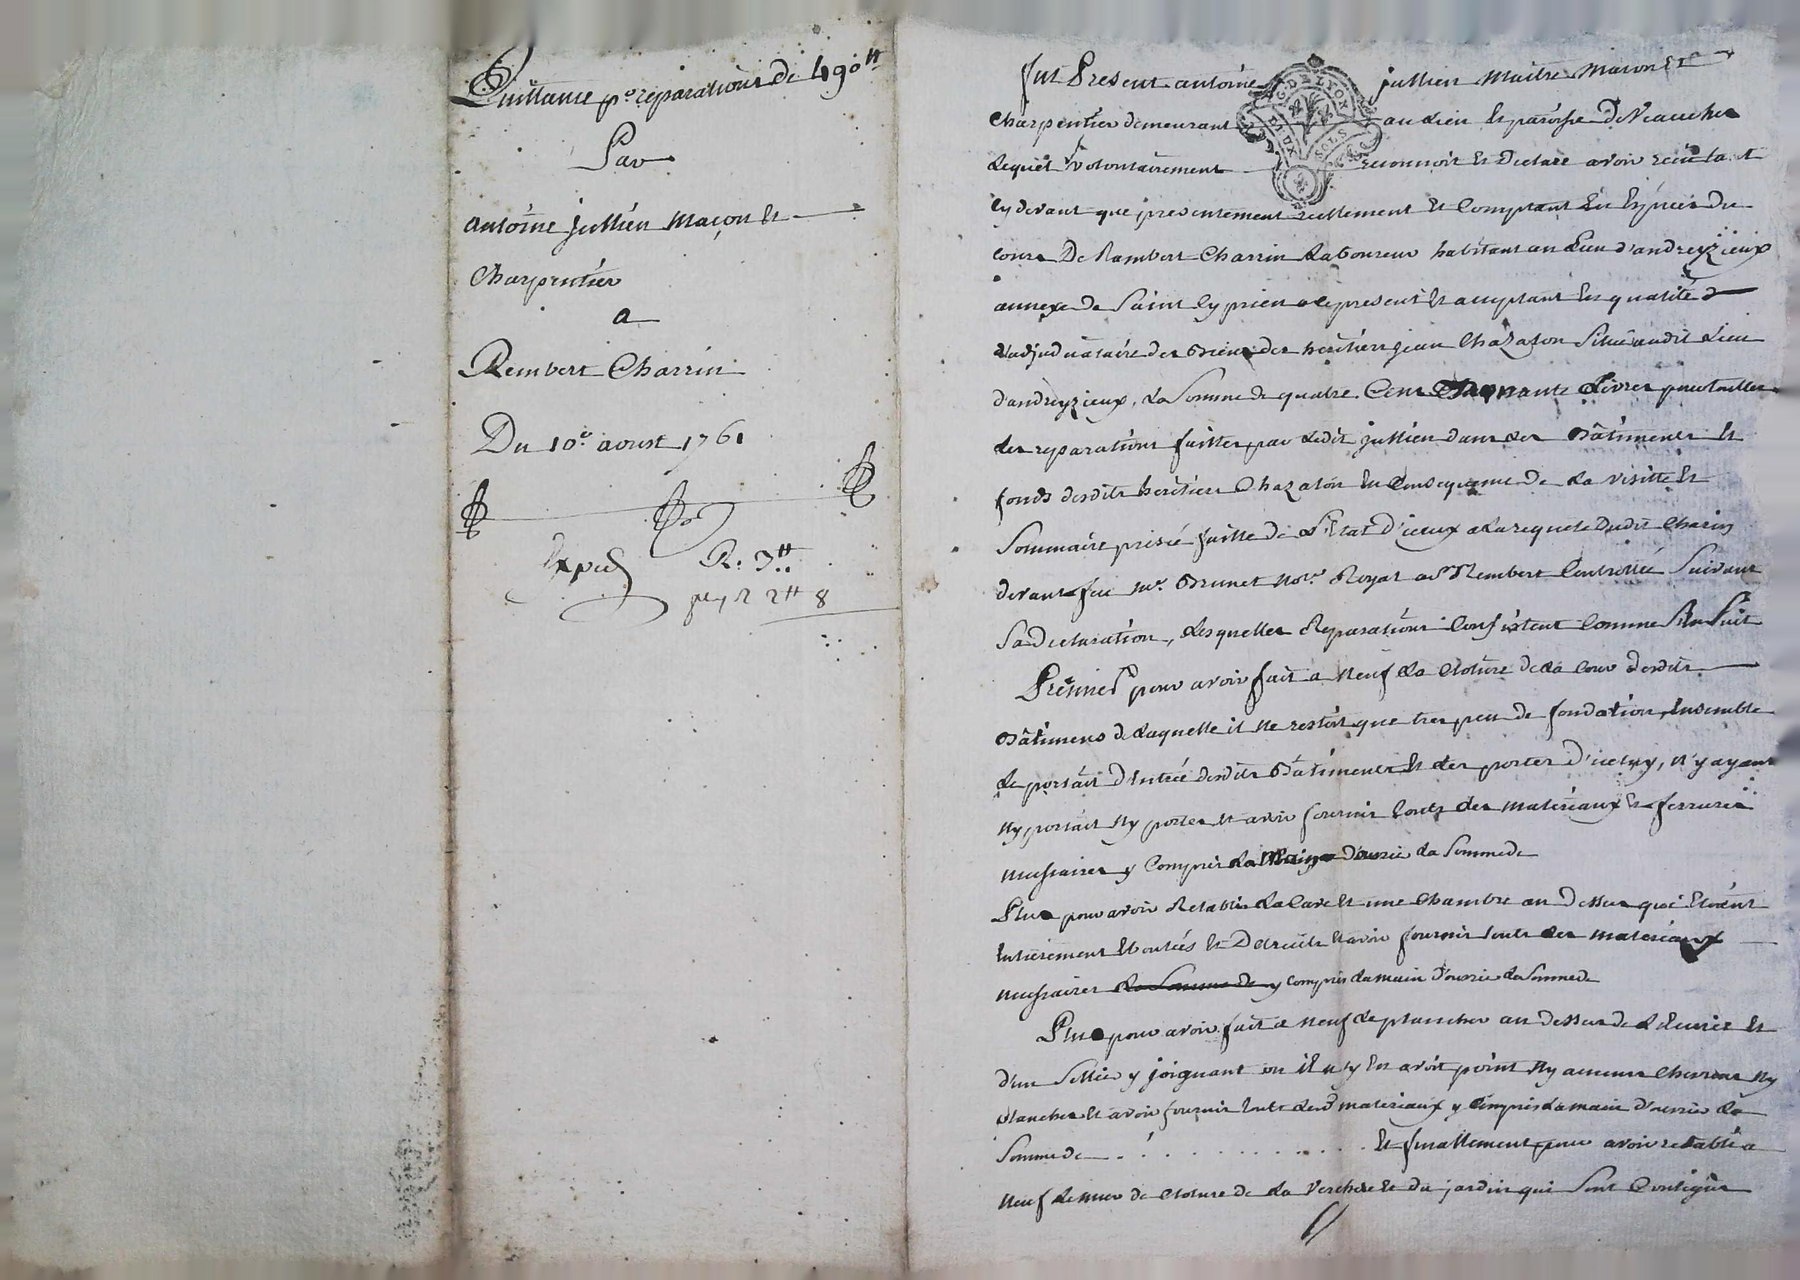 Quittance pr reparations de 490tt
Par
antoine jullien maçon et
Charpentier
a
Rembert Charrin
Du 10e aoust 1761
Exped R: 3tt
2tt 8
fut Present antoine jullien maitre masson et
Charpentier demeurant au lieu et paroisse de Veauche
Lequel volontairement reconnoit et declare avoir recu tant
cy devant que presentement reellement et Comptant En Especes du
cours De Rambert Charrin Laboureur habitant au Lieu d'andreyzieux
annexe de Saint Cyprien a ce present et acceptant en qualité
d'adjudicataire des Biens des heritiers jean Chazalon Situé audit Lieu
d'andreyzieux, La Somme de quatre Cent Livres pour toutes
les reparations faittes par ledit jullien dans les Bâtiments et
fonds desdits heritiers Chazalon En Consequence De La visitte et
Sommaire prisée faitte de L'Etat d'iceux a La requete Dudit Charin
devant feu me. Brunet Notre. Royal a St Rembert Controllée Suivant
Sa Declaration, Lesquelles Reparations Consistent Comme S'En Suit
Premiert pour avoir fait a neuf La Cloture de La Cour desdits
Bâtimens de Laquelle il ne restoit que tres peu de fondation, Ensemble
Le portail d'Entrée desdits Bâtiments et les portes d'icelluy, n'y ayant
ny portail ny portes et avoir fournir touts les materiaux et ferrures
necessaires y Compris La Main d'ouvrée La Somme de
Plus pour avoir Retabli La Cave et une Chambre au Dessus qui Etoient
Entierement Ecoulés et Detruits et avoir fournir touts les materiaux
necessaires La Somme de y Compris La main d'ouvrée La Somme de
Plus pour avoir fait a neuf Le plancher au dessus de L'Ecurie et
d'un Sellier y joignant ou il n'y En avoit point ny aucuns Chevrons ny
plancher et avoir fournir touts lesds materiaux y Compris La main d'ouvrée La
Somme de . . . . . . . . . . . . . Et finallement pour avoir retabli a
neuf Le mur de Cloture de La Verchere et du jardin qui Sont Contigües